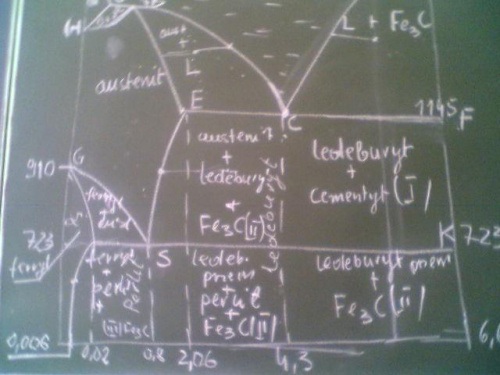 H
L + Fe3C
aust
+
L
austenit
E
C
1145
F
austenit
+
ledeburyt
+
Fe3C(II)
ledeburyt
ledeburyt
+
cementyt (I)
910
G
723
ferryt
S
K
723
ferryt
+
perlit
+
(III)Fe3C
perlit
ledeb.
przem
perlit
+
Fe3C(II)
ledeburyt przem
+
Fe3C(II)
0,006
0,02
0,8
2,06
4,3
6,6